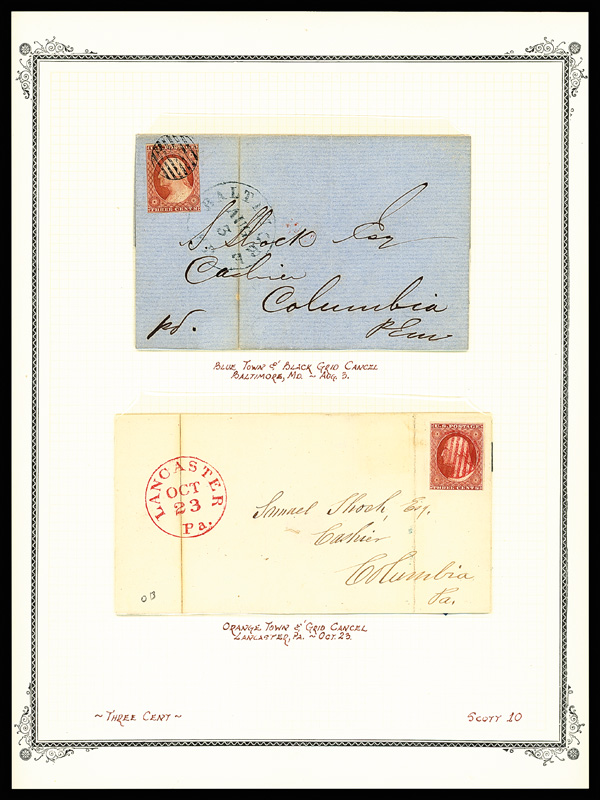 THREE CENTS
BALTIMORE
AUG
3
Md
S. Shock Esq
Cashier
Columbia
pd.
Penn
BLUE TOWN & BLACK GRID CANCEL
BALTIMORE, MD. ~ AUG. 3.
U.S. POSTAGE
THREE CENTS
LANCASTER
OCT
23
Pa.
Samuel Shoch, Esq.
Cashier
Columbia
Pa.
OB
ORANGE TOWN & GRID CANCEL
LANCASTER, PA. ~ OCT. 23.
~ THREE CENT ~
SCOTT 10